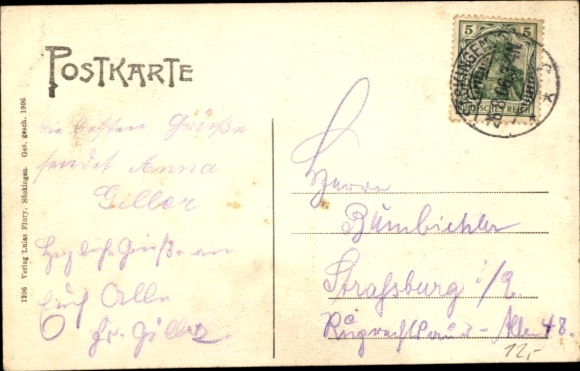 POSTKARTE
5 5
DEUTSCHES REICH
SÄCKINGEN
1206 Verlag Luise Flury, Säckingen. Ges. gesch. 1906
Die besten Grüße
sendet Anna
Giller
Herzliche Grüße an
Euch Alle
Fr. Giller
Herrn
Strassburg i/E.
48.
12,-